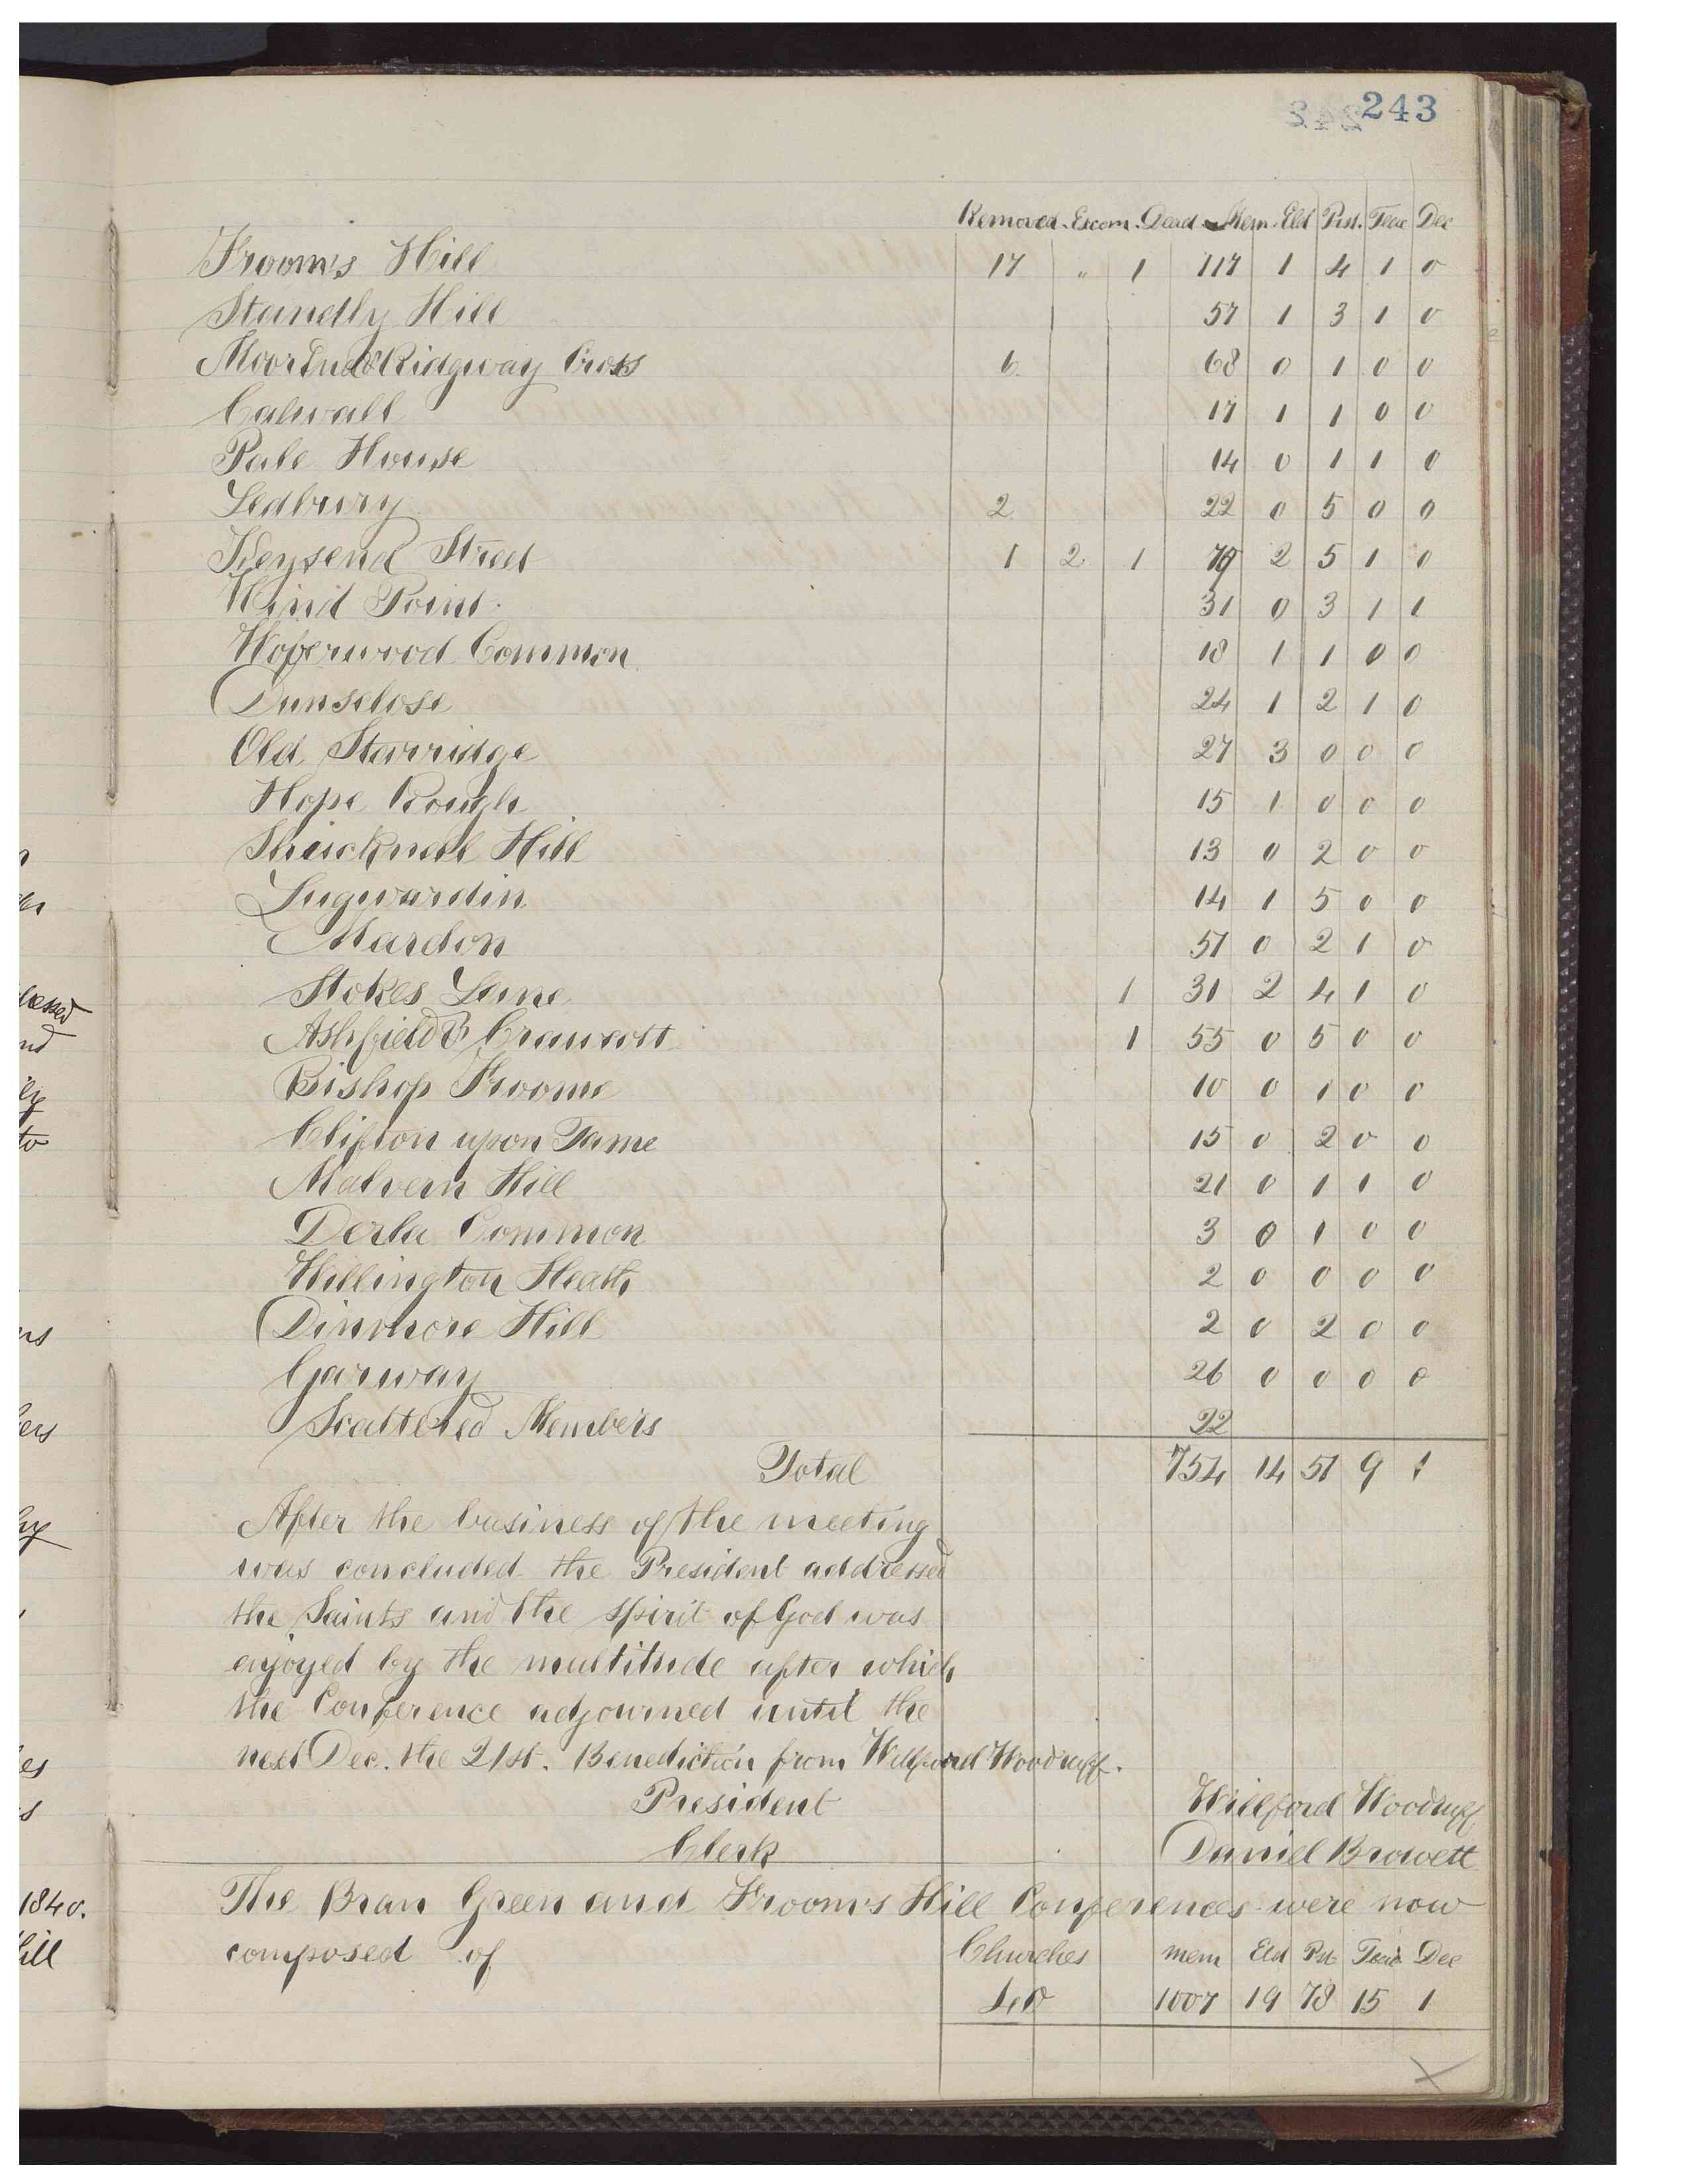 243
Removed. Excom. Dead Mem. Eld Prst. Teac Dec
Frooms Hill 17 " 1 117 1 4 1 0
Standly Hill 57 1 3 1 0
Moorend & Ridgway Cross 6 68 0 1 0 0
Calwall 17 1 1 0 0
Pale House 14 0 1 1 0
Ledbury 2 22 0 5 0 0
Keysend Street 1 2 1 79 2 5 1 0
Wind Point. 31 0 3 1 1
Woferwood Common 18 1 1 0 0
Dunsclose 24 1 2 1 0
Old Starridge 27 3 0 0 0
Hope Rough 15 1 0 0 0
Shucknall Hill 13 0 2 0 0
Lugwardin 14 1 5 0 0
Mardon 51 0 2 1 0
Stokes Lane 1 31 2 4 1 0
Ashfield & Crawcott 1 55 0 5 0 0
Bishop Froome 10 0 1 0 0
Clifton upon Tame 15 0 2 0 0
Malvern Hill 21 0 1 1 0
Derla Common 3 0 1 0 0
Hillington Heath 2 0 0 0 0
Dinmore Hill 2 0 2 0 0
Garway 26 0 0 0 0
Scattered Members 22
Total 754 14 51 9 1
After the business of the meeting
was concluded the President addressed
the Saints and the spirit of God was
enjoyed by the multitude after which
the Conference adjourned until the
next Dec. the 21st. Benediction from Willford Woodruff.
President Willford Woodruff
Clerk Daniel Browett
The Bran Green and Frooms Hill Conferences were now
composed of Churches mem Eld Pst Teac Dec
40 1007 19 78 15 1
1840.